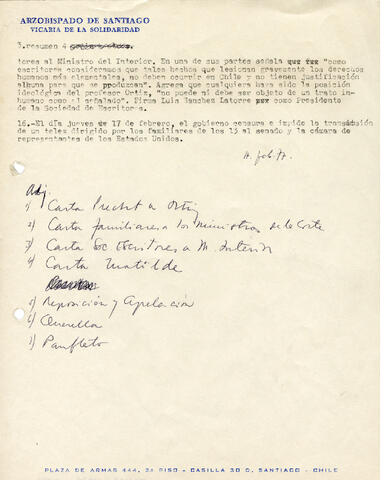 ARZOBISPADO DE SANTIAGO
VICARIA DE LA SOLIDARIDAD
3.resumen 4
tores al Ministro del Interior. En una de sus partes señala que "como
escritores consideramos que tales hechos que lesionan gravemente los derechos
humanos más elementales, no deben ocurrir en Chile y no tienen justificación
alguna para que se produzcan". Agrega que cualquiera haya sido la posición
ideológica del profesor Ortiz, "no puede ni debe ser objeto de un trato in-
humano como el señalado". Firma Luis Sanchez Latorre como Presidente
de la Sociedad de Escritores.
16.-El día jueves 17 de febrero, el gobierno censura e impide la transmisión
de un telex dirigido por los familiares de los 13 al senado y la cámara de
representantes de los Estados Unidos.
feb. 77.
Adj.
1) Carta Precht a Ortiz
2) Carta familiares a los Ministros de la Corte
3) Carta Soc Escritores a M. Interior
4) Carta Matilde
5) Reposición y Apelación
6) Querella
7) Panfleto
PLAZA DE ARMAS 444, 2º PISO - CASILLA 30 D, SANTIAGO - CHILE